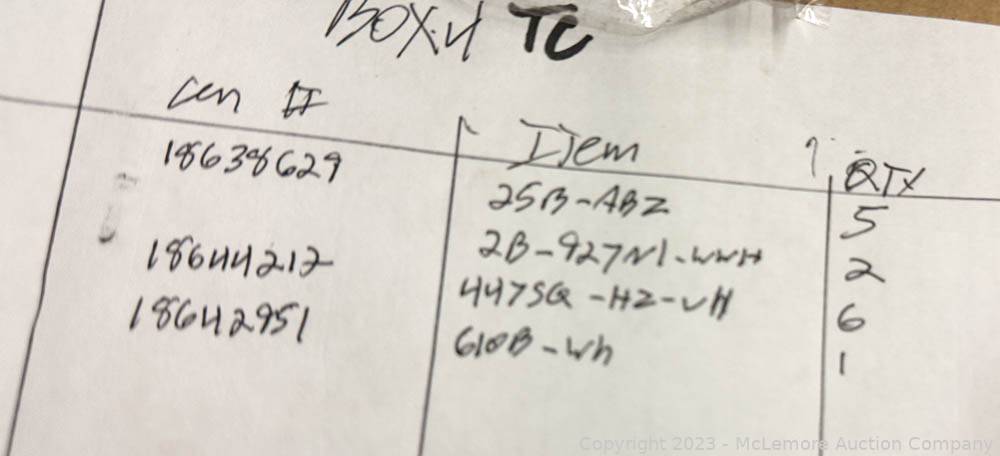 BOX.4 TC
Item QTY
18638629 25B-ABZ 5
2B-927NI-WWH 2
18644212 447SQ-HZ-VH 6
18642951 610B-Wh 1
Copyright 2023 - McLemore Auction Company